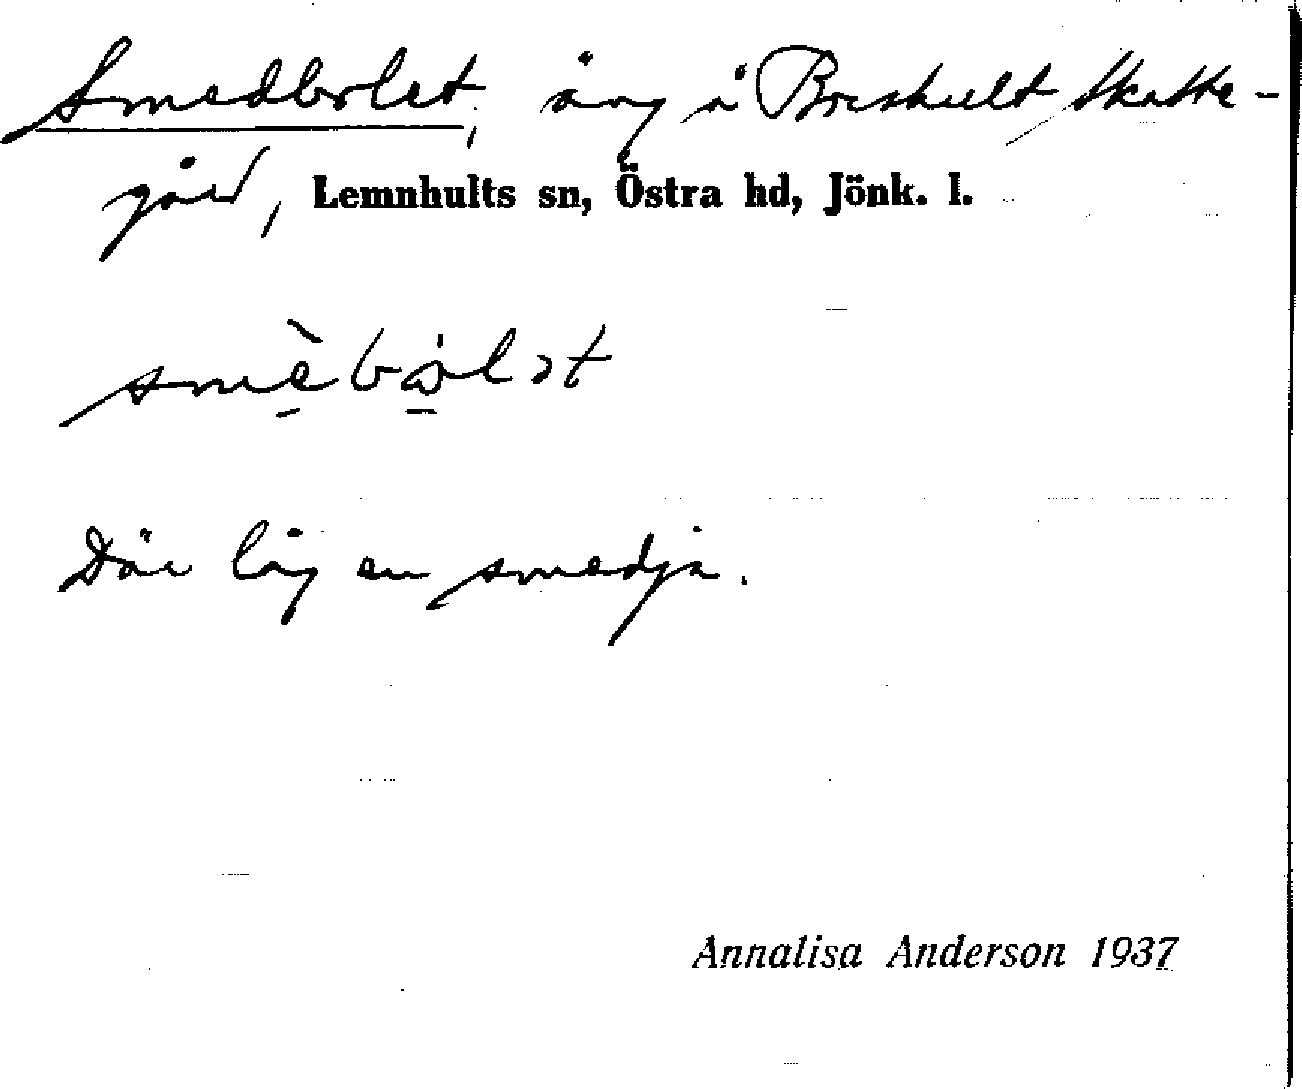 Smedbolet, äng å Boeskult Skatte-
gård, Lemnhults sn, Östra hd, Jönk. l.
smèbω̇lət
Där låg en smedja.
Annalisa Anderson 1937